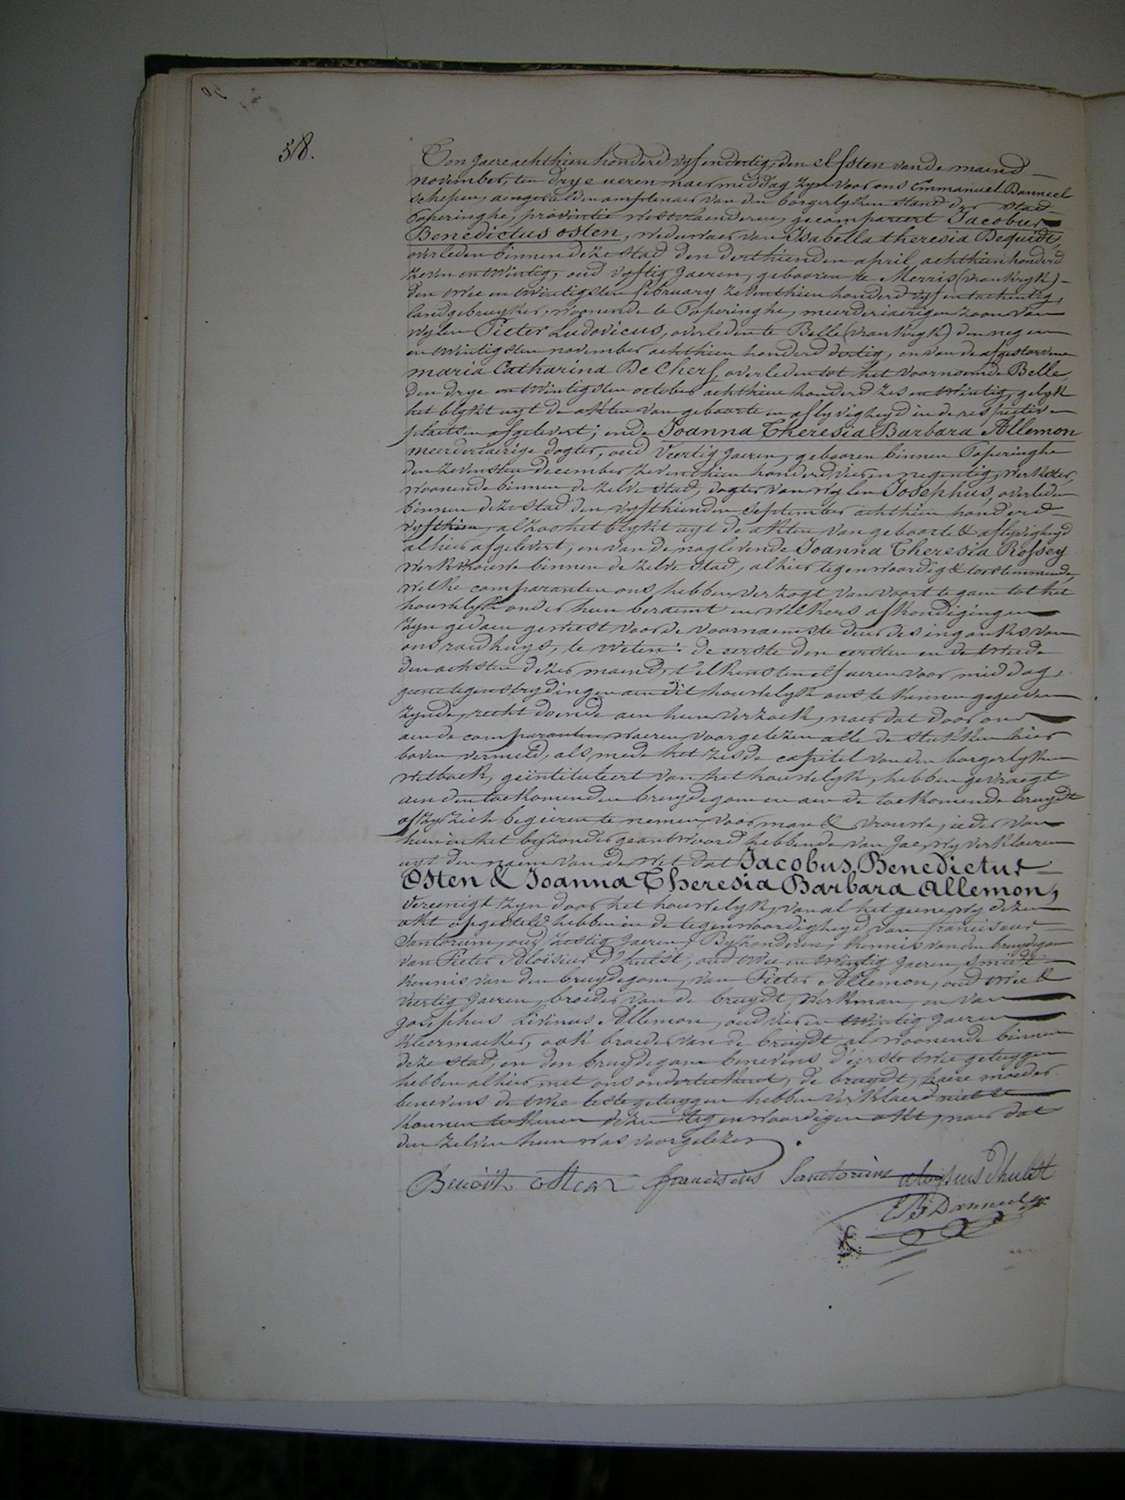 58.
Ten jaere achthien honderd vyf en dertig, den elfsten van de maend
november, ten drye ueren naer middag zyn voor ons Emmanuel Danneel
schepen, aengestelden amptenaer van den borgerlyken stand der stad
Poperinghe, provintie westvlaenderen, gecompareert Jacobus
Benedictus Osten, weduwaer van Isabella theresia Dequidt,
overleden binnen deze stad den derthienden april achthien honderd
zeven en twintig, oud vyftig jaeren, gebooren te Merris (vrankryk)
den twee en twintigsten february zeventhien honderd vyf en tachentig,
landgebruyker, woonende te Poperinghe, meerderjaerigen zoon van
wylen Pieter Ludovicus, overleden te Belle (vrankryk) den negen
en twintigsten november achthien honderd dertig, en van de afgestorvene
maria Catharina De Cherf, overleden tot het voornoemde Belle,
den drye en twintigsten october achthien honderd zes en twintig, gelyk
het blykt uyt de akten van geboorte en aflyvigheyd in de respective
plaetsen afgelevert; ende Joanna Theresia Barbara Allemon
meerderjaerige dogter, oud veertig jaeren, gebooren binnen Poperinghe
den zevensten december zeventhien honderd vier en negentig, werkster,
woonende binnen de zelve stad, dogter van wylen Josephus, overleden
binnen deze stad den vyfthienden september achthien honderd
vyfthien, alzoo het blykt uyt de akten van geboorte & aflyvigheyd
alhier afgelevert, en van de naglevende Joanna Theresia Rossey
werkvrouw binnen de zelve stad, alhier tegenwoordig & toestemmende,
welke comparanten ons hebben verzogt van voort te gaen tot het
houwelyk onder hun beraemt en welkers afkondigingen
zyn gedaen geweest voor de voornaemste deur des ingancks van
ons raedhuys, te weten: de eerste den eersten en de tweede
den achsten dezer maend, t'elkens ten elf ueren voor middag,
geene tegenstrydingen aen dit houwelyk ons te kennen gegeven
zynde, recht doende aen hun verzoek, naer dat door ons
aen de comparanten waeren voorgelezen alle de stukken hier
boven vermeld, als mede het zesde capitel van den borgerlyken
wetboek, geïntituleert van het houwelyk, hebben gevraegt
aen den toekomenden bruydegom en aen de toekomende bruydt
of zy zich begeren te nemen voor man & vrouwe, ieder van
hun in het byzonder geantwoord hebbende van jae, wy verklaeren
uyt den naem van de wet dat Jacobus Benedictus
Osten & Joanna Theresia Barbara Allemon,
vereenigt zyn door het houwelyk, van al het geene wy dezen
akt opgesteld hebben in de tegenwoordigheyd van franciscus
Santorum, oud zestig jaeren, Byzonderen, kennis van den bruydegom
van Pieter Aloisius D'hulst, oud twee en twintig jaeren, smidt
kennis van den bruydegom, van Pieter Allemon, oud twee &
veertig jaeren, broeder van de bruydt, werkman, en van
Josephus Livinus Allemon, oud vier en twintig jaeren
kleermaeker, ook broeder van de bruydt, al woonende binnen
deze stad, en den bruydegom benevens d'eerste twee getuygen
hebben alhier met ons onderteekend, de bruydt, haere moeder
benevens de twee leste getuygen hebben verklaerd niet te
konnen teekenen dezen tegenwoordigen akt, naer dat
den zelven hun was voorgelezen.
Benoit Osten franciscus Sanctorum aloysius Dhulst
E B Danneel